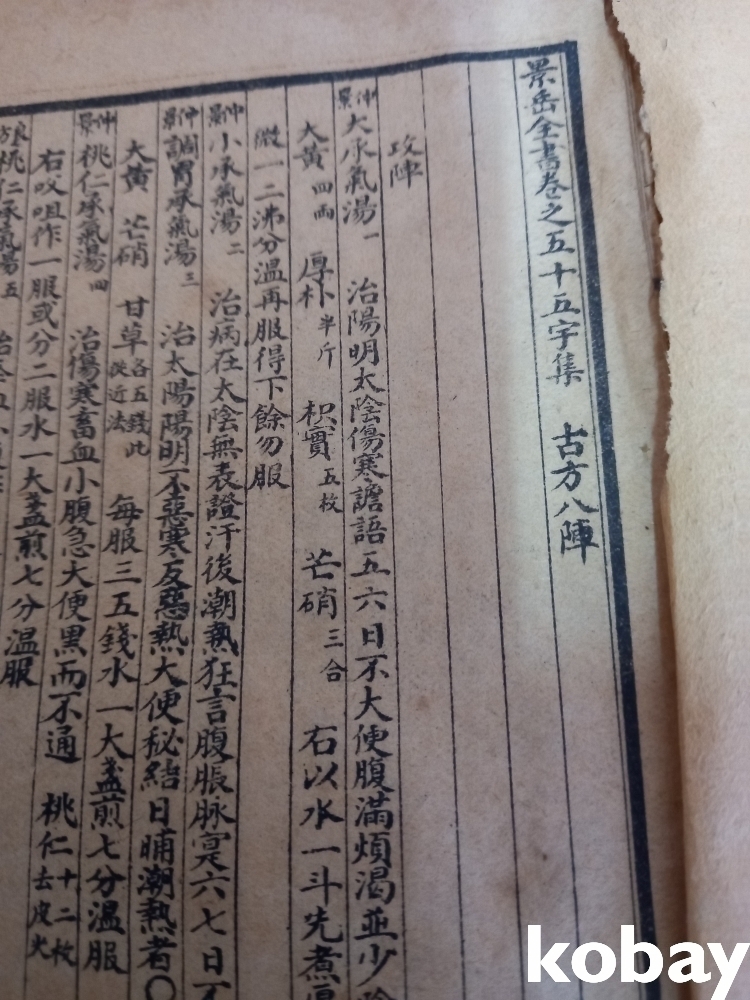 景岳全書卷之五十五字集 古方八陣
攻陣
仲景大承氣湯一 治陽明太陰傷寒譫語五六日不大便腹滿煩渴並少陰
大黃四兩 厚朴半斤 枳實五枚 芒硝三合 右以水一斗先煮
微一二沸分溫再服得下餘勿服
仲景小承氣湯二 治病在太陰無表證汗後潮熱狂言腹脹脉寔六七日不
仲景調胃承氣湯三 治太陽陽明不惡寒反惡熱大便秘結日晡潮熱者○
大黃 芒硝 甘草各五錢此從近法 每服三五錢水一大盞煎七分溫服
仲景桃仁承氣湯四 治傷寒畜血小腹急大便黑而不通 桃仁十二枚去皮尖
右㕮咀作一服或分二服水一大盞煎七分溫服
桃仁承氣湯五
kobay